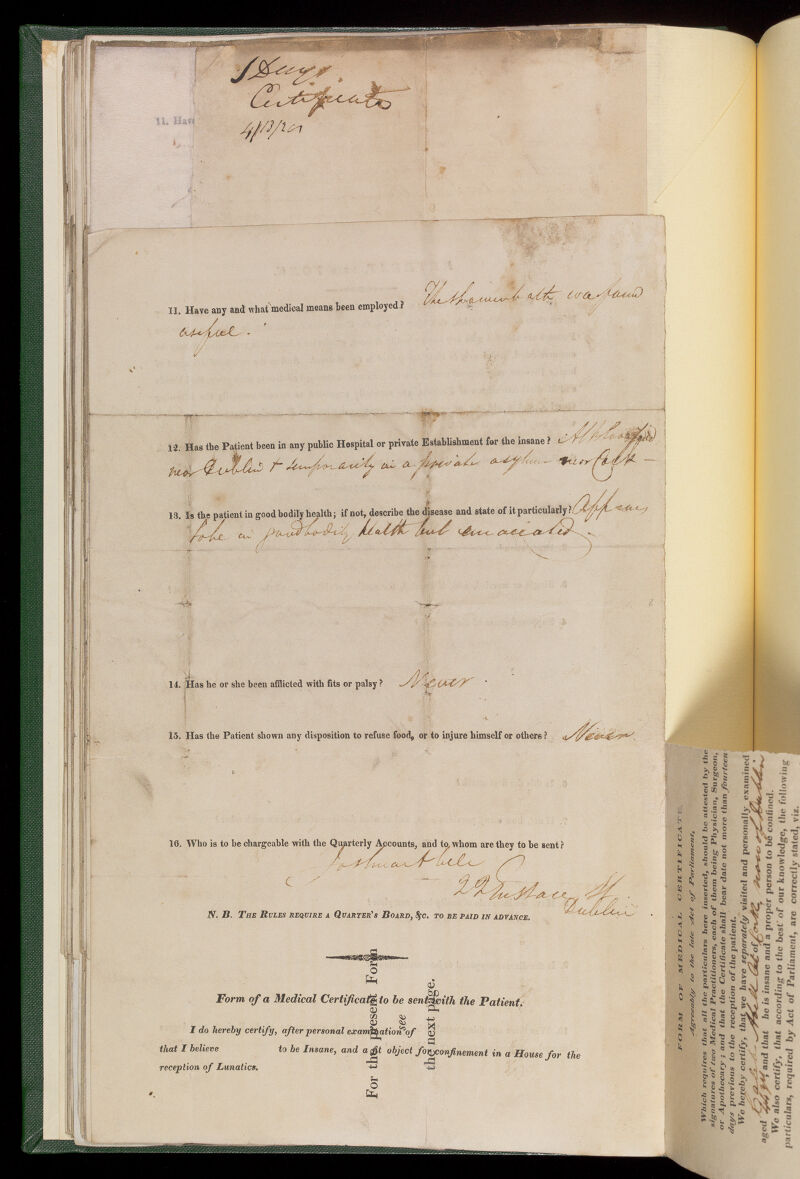 Certificates
11. Hav
11. Have any and what medical means been employed? The shower bath was found
useful.
12. Has the Patient been in any public Hospital or private Establishment for the insane? At
near Dublin & temporarily in a private asylum near Cork –
13. Is the patient in good bodily health; if not, describe the disease and state of it particularly? Appears
to be in good bodily health but emaciated.
14. Has he or she been afflicted with fits or palsy? Never.
15. Has the Patient shown any disposition to refuse food, or to injure himself or others? Never.
16. Who is to be chargeable with the Quarterly Accounts, and to whom are they to be sent?
22 Eustace St
Dublin.
N. B. THE RULES REQUIRE A QUARTER'S BOARD, &c. TO BE PAID IN ADVANCE.
Form of a Medical Certificate to be sent with the Patient.
I do hereby certify, after personal examination of
that I believe to be Insane, and a fit object for confinement in a House for the
reception of Lunatics.
For the present Form
see
the next page.
FORM OF MEDICAL CERTIFICATE
Agreeably to the late Act of Parliament,
Which requires that all the particulars here inserted, should be attested by the
signatures of two Medical Practitioners, each of them being Physician, Surgeon,
or Apothecary; and that the Certificate shall bear date not more than fourteen
days previous to the reception of the patient.
We hereby certify, that we have separately visited and personally examined
of Cork, now of Dublin
aged and that he is insane and a proper person to be confined.
We also certify, that according to the best of our knowledge, the following
particulars, required by Act of Parliament, are correctly stated, viz.